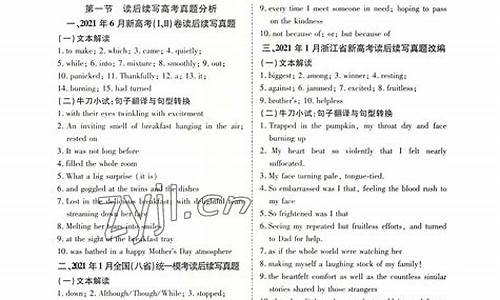 第一节 读后续写高考真题分析
一、2021年6月新高考(I、II)卷读后续写真题
(一)文本解读
1. to make; 2. which; 3. care; 4. quietly;
5. while; 6. into; 7. mixture; 8. smoothly; 9. out;
10. panicked; 11. Thankfully; 12. a; 13. it;
14. burning; 15. had turned
(二)牛刀小试:句子翻译与句型转换
1. with their eyes twinkling with excitement
2. An inviting smell of breakfast hanging in the air;
rested on
3. It was not long before
4. filled the whole room
5. What a big surprise (it is)
6. and goggled at the twins and the dishes
7. Lost in the delicious breakfast, with delightful tears
streaming down her face
8. Melting her tears into smiles
9. at the sight of the breakfast tray
10. was bathed in a happy Mother's Day atmosphere
二、2021年1月全国(八省)统一模考读后续写真题
(一)文本解读
1. down; 2. Although/Though/While; 3. stopped;
9. every time I meet someone in need; hoping to pass
on the kindness
10. not because of; or; but because of
三、2021年1月浙江省新高考读后续写真题改编
(一)文本解读
1. biggest; 2. among; 3. winner; 4. resting;
5. against; 6. jammed; 7. excited; 8. fruitless;
9. brother's; 10. helpless
(二)牛刀小试:句子翻译与句型转换
1. Trapped in the pumpkin, my throat dry and face
burning up
2. My heart beat so violently that I felt nearly
suffocated.
3. My face turning pale, tongue-tied.
4. So embarrassed was I that, feeling the blood rush to
my face
5. So frightened was I that
6. Seeing my repeated but fruitless efforts, and turned
to Dad for help.
7. as if the whole world were watching her
8. making myself a laughing stock of my family!
9. the heartfelt comfort as well as the countless similar
stories shared by those strangers
zyjl.cn